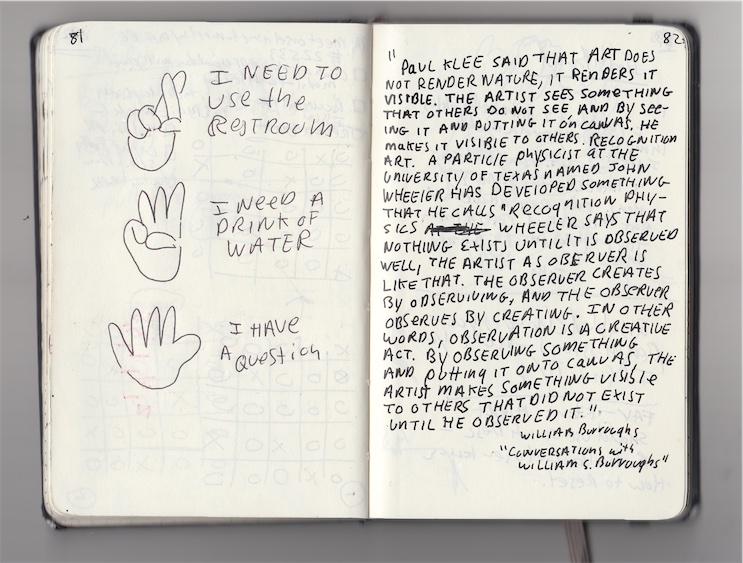 81
I NEED TO
USE the
RESTROOM
I NEED A
DRINK OF
WATER
I HAVE
A QUESTION
82
"
PAUL KLEE SAID THAT ART DOES
NOT RENDER NATURE, IT RENDERS IT
VISIBLE. THE ARTIST SEES SOMETHING
THAT OTHERS DO NOT SEE AND BY SEE-
ING IT AND PUTTING IT ON CANVAS, HE
MAKES IT VISIBLE TO OTHERS. RECOGNITION
ART. A PARTICLE PHYSICIST AT THE
UNIVERSITY OF TEXAS NAMED JOHN
WHEELER HAS DEVELOPED SOMETHING
THAT HE CALLS "RECOGNITION PHY-
SICS WHEELER SAYS THAT
NOTHING EXISTS UNTIL IT IS OBSERVED
WELL, THE ARTIST AS OBERVER IS
LIKE THAT. THE OBSERVER CREATES
BY OBSERVIVING, AND THE OBSERVER
OBSERVES BY CREATING. IN OTHER
WORDS, OBSERVATION IS A CREATIVE
ACT. BY OBSERVING SOMETHING
AND PUTTING IT ONTO CANVAS, THE
ARTIST MAKES SOMETHING VISIBLE
TO OTHERS THAT DID NOT EXIST
UNTIL HE OBSERVED IT."
WILLIAM BURROUGHS
"CONVERSATIONS with
WILLIAM S. BURROUGHS"